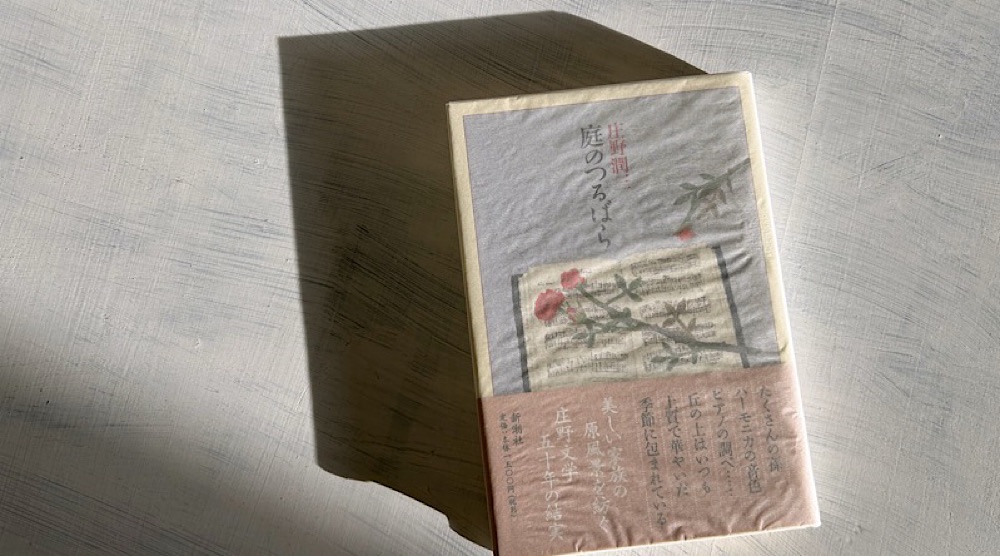 庄野潤三
庭のつるばら
たくさんの孫
ハーモニカの音色
ピアノの調べ……
丘の上はいつも
上質で華やいだ
季節に包まれている。
美しい家族の
原風景を紡ぐ
庄野文学
五十年の結実
新潮社
定価:本体一五〇〇円(税別)